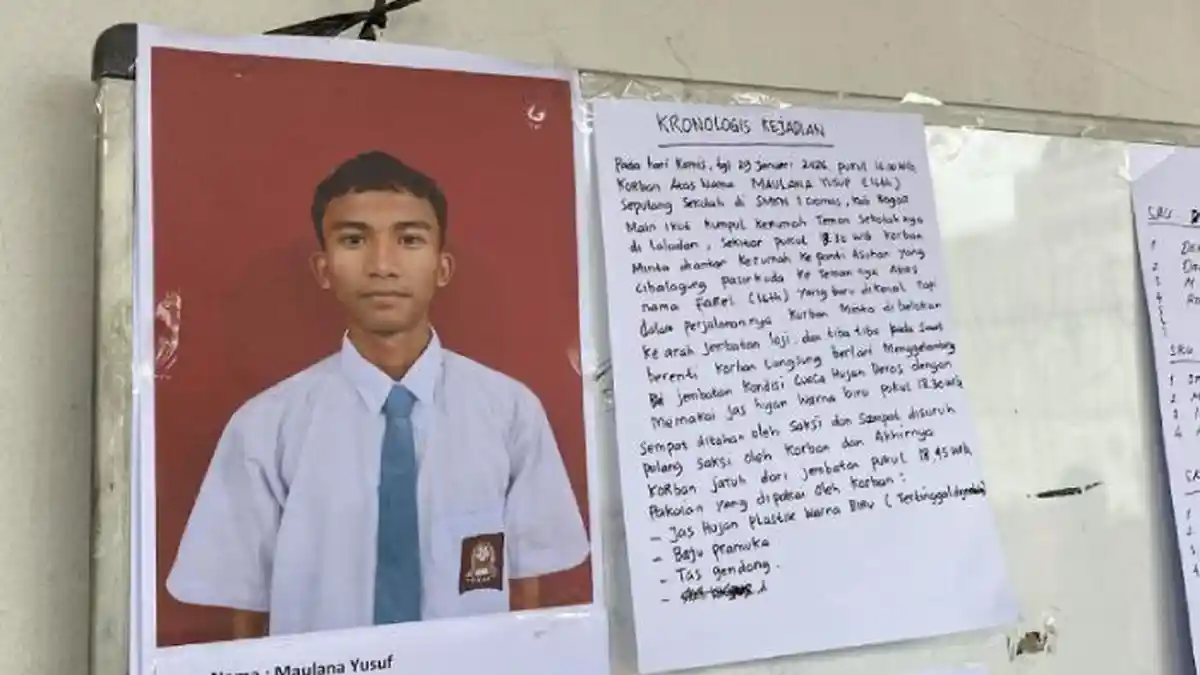 KRONOLOGIS KEJADIAN
Pada hari Kamis, tgl 29 Januari 2026 pukul 16.00 Wib
Korban Atas Nama MAULANA YUSUF (16th)
Sepulang Sekolah di SMKN 1 Ciomas, Kab Bogor
Main ikut Kumpul Kerumah Teman Sekolahnya
di Laladon, Sekitar pukul 18.30 wib Korban
Minta diantar Kerumah Ke panti Asuhan yang
Cibalagung pasirkuda Ke Teman nya Atas
nama Farel (16th) yang baru di kenal Tapi
dalam perjalanannya Korban Minta di belokan
Ke arah Jembatan Loji, dan tiba tiba pada Saat
berenti Korban Langsung berlari Menggelantung
di Jembatan Kondisi Cuaca Hujan Deras dengan
Memakai Jas hujan Warna biru pukul 18.30 wib
Sempat ditahan oleh Saksi dan Sempat disuruh
pulang Saksi oleh Korban dan Akhirnya
Korban Jatuh dari Jembatan pukul 18.45 wib
Pakaian yang dipakai oleh Korban :
- Jas Hujan plastik Warna BIRU (Tertinggal
- Baju pramuka
- Tas gendong.
Nama : Maulana Yusuf
SRU
1
2
3
4
SRU
1
2
3
4